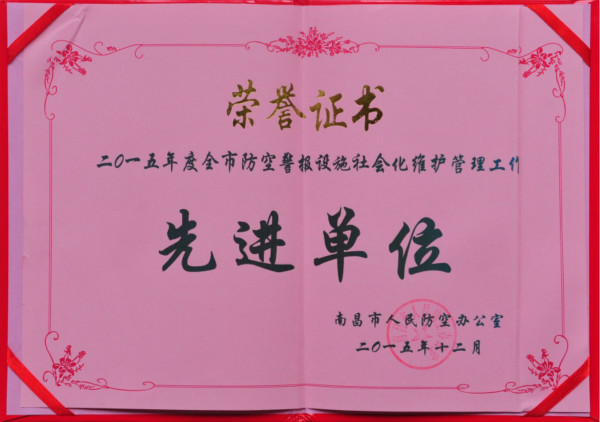 荣誉证书
二〇一五年度全市防空警报设施社会化维护管理工作
先进单位
南昌市人民防空办公室
二〇一五年十二月